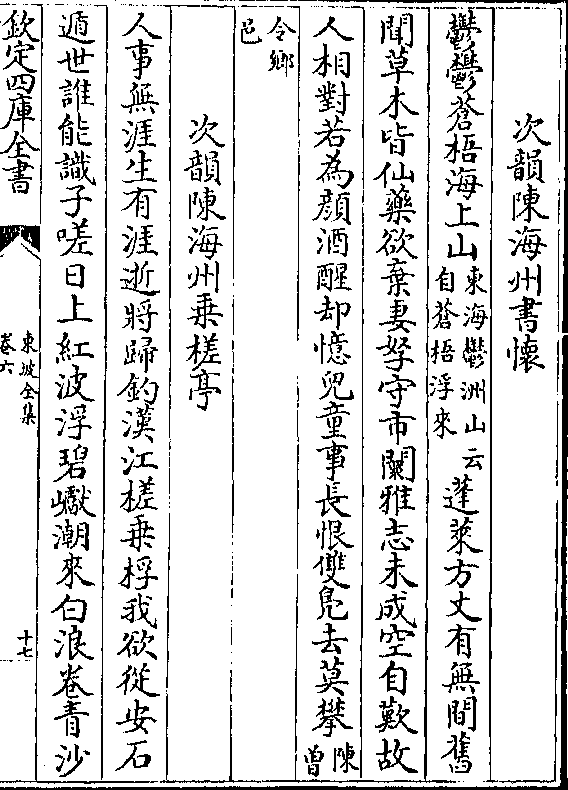 次韻陳海州書懷
鬱鬱蒼梧海上山東海鬱洲山云自蒼梧浮來蓬萊方丈有無間舊
聞草木皆仙藥欲棄妻孥守市闤雅志未成空自歎故
人相對若為顔酒醒却憶兒童事長恨雙鳧去莫攀陳曽
令鄉邑
次韻陳海州乗槎亭
人事無涯生有涯逝將歸釣漢江槎乗桴我欲從安石
遁世誰能識子嗟日上紅波浮碧巘潮來白浪卷青沙
欽定四庫全書
東坡全集
卷六
十七